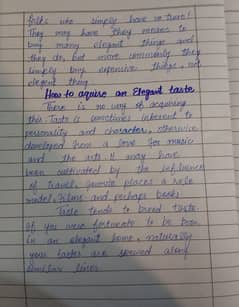 folks who simply have no taste!
They may have they means to
buy many elegant things and
they do, but more commonly they
simply buy expensive things, not
elegant thing
How to aquire an Elegant taste
There is no way of acquiring
this. Taste is sometimes inherent to
personality and character, otherwise
developed from a love for music
and the arts. It may have
been cultivated by the influence
of travel, favorite places a role
model, films and perhaps books.
Taste tends to breed taste.
If you were fortunate to be born
in an elegant home, naturally
your tastes are skewed along
similar lines.